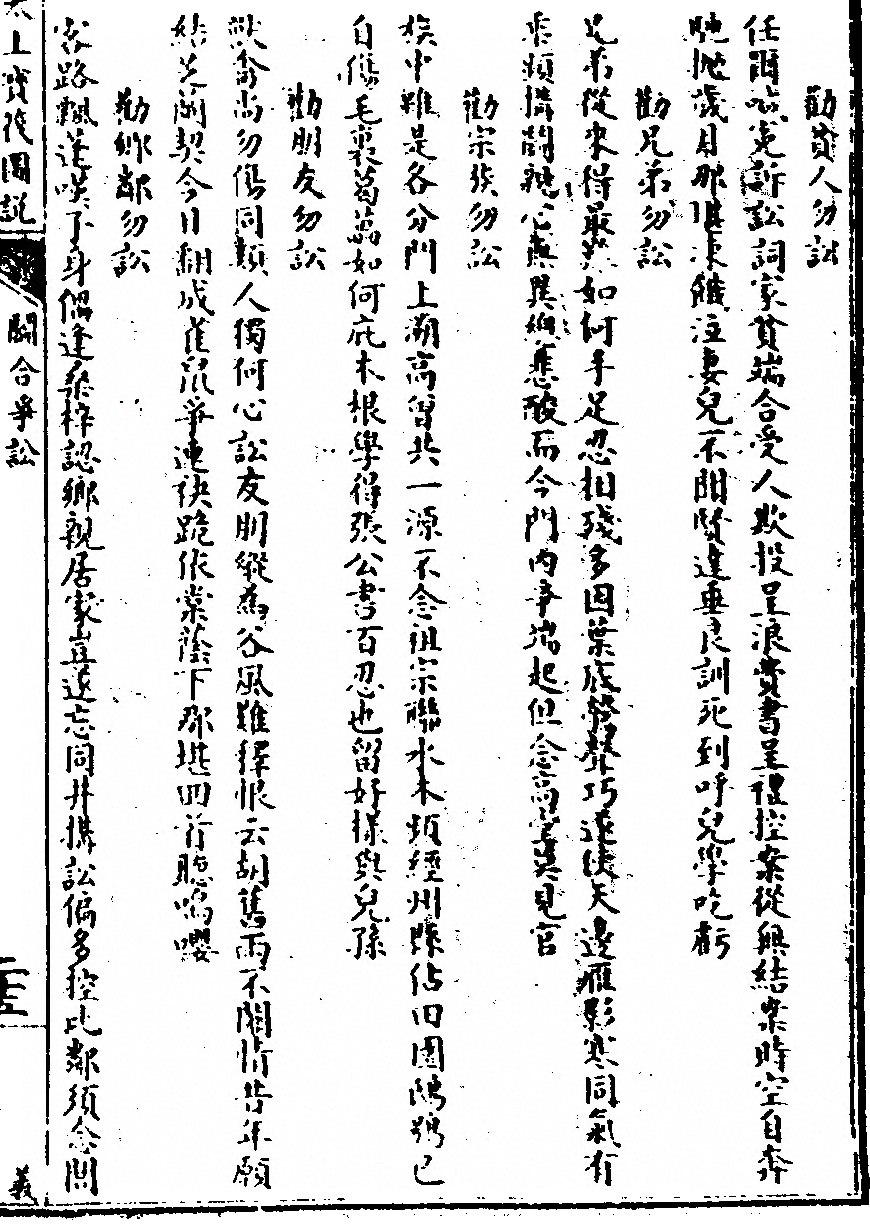 勸貧人勿訟
任爾含冤訴訟詞家貧端合受人欺投呈浪費書呈禮控案從無結案時空自奔
馳拋歲月那堪凍餓泣妻兒不聞賢達垂良訓死到呼兒學吃虧
勸兄弟勿訟
兄弟從來得最難如何手足忍相殘多因葉底鶯聲巧遂使天邊雁影寒同氣有
乖頻搆鬭親心無異與悲酸而今門內爭端起但念高堂莫見官
勸宗族勿訟
族中雖是各分門上溯高曾共一源不念祖宗聯水木頻經州縣佔田園鴟鴞已
自傷毛裏葛藟如何庇本根學得張公書百忍也留好樣與兒孫
勸朋友勿訟
獸禽尚勿傷同類人獨何心訟友朋縱為谷風難釋恨云胡舊雨不關情昔年願
結芝蘭契今日翻成雀鼠爭連袂跪依棠蔭下那堪回首聽鳴嚶
勸鄉鄰勿訟
客路飄蓬嘆下身偶逢桑梓認鄉親居家豈遂忘同井搆訟偏多控比鄰須念關
太上寶筏圖說
鬬合爭訟
義